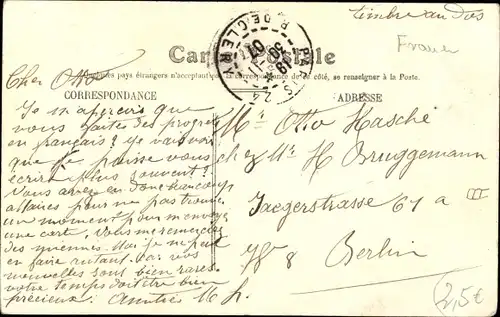 Timbre au Dos
France
Carte Postale
PARIS
R. DE CLERY
pays étrangers n'acceptant pas la correspondance de ce côté, se renseigner à la Poste.
CORRESPONDANCE
ADRESSE
Cher Otto
Je m'aperçois que
vous faites des progrès
en français? J'y vois
que je puisse vous
écrire plus souvent?
Vous avez donc beaucoup
affaires pour ne pas trouver
un moment pour m'envoyer
une carte. Vous me remerciez
des miennes. Moi je ne peux
en faire autant. Car vos
nouvelles sont bien rares.
votre temps doit être bien
précieux. Amitiés M. h.
Mr Otto Hasché
chez Mr H Bruggemann
Jaegerstrasse 67 a III
W 8 Berlin
2,5€